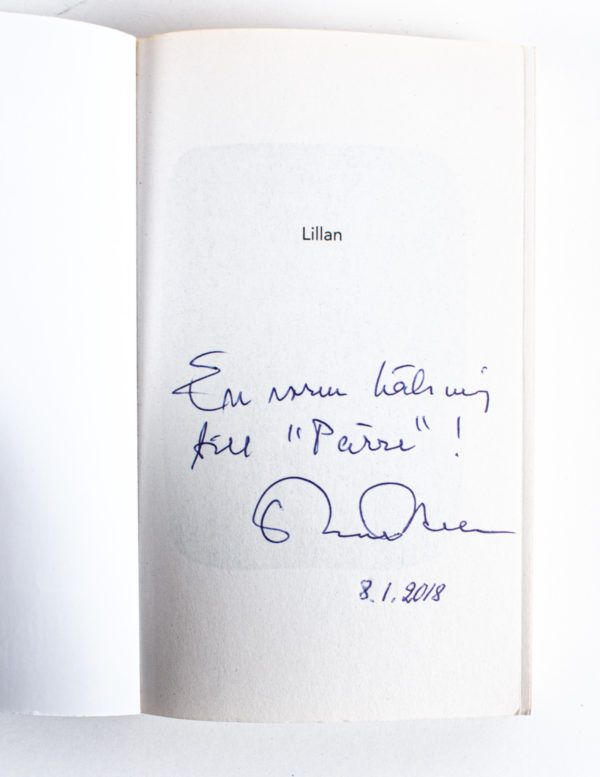 Lillan
En varm hälsning
till "Pärre"!
8.1.2018